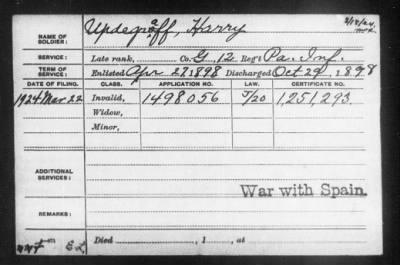 NAME OF SOLDIER: Updegraff, Harry
SERVICE: Late rank, Co. G, 12 Reg't Pa. Inf.
TERM OF SERVICE: Enlisted Apr 27, 1898 Discharged Oct 29, 1898
DATE OF FILING. CLASS. APPLICATION NO. LAW. CERTIFICATE NO.
1924 Mar 22 Invalid, 1498056 J/20 1,251,293.
Widow,
Minor,
ADDITIONAL SERVICES:
War with Spain.
REMARKS:
Died , 1 , at